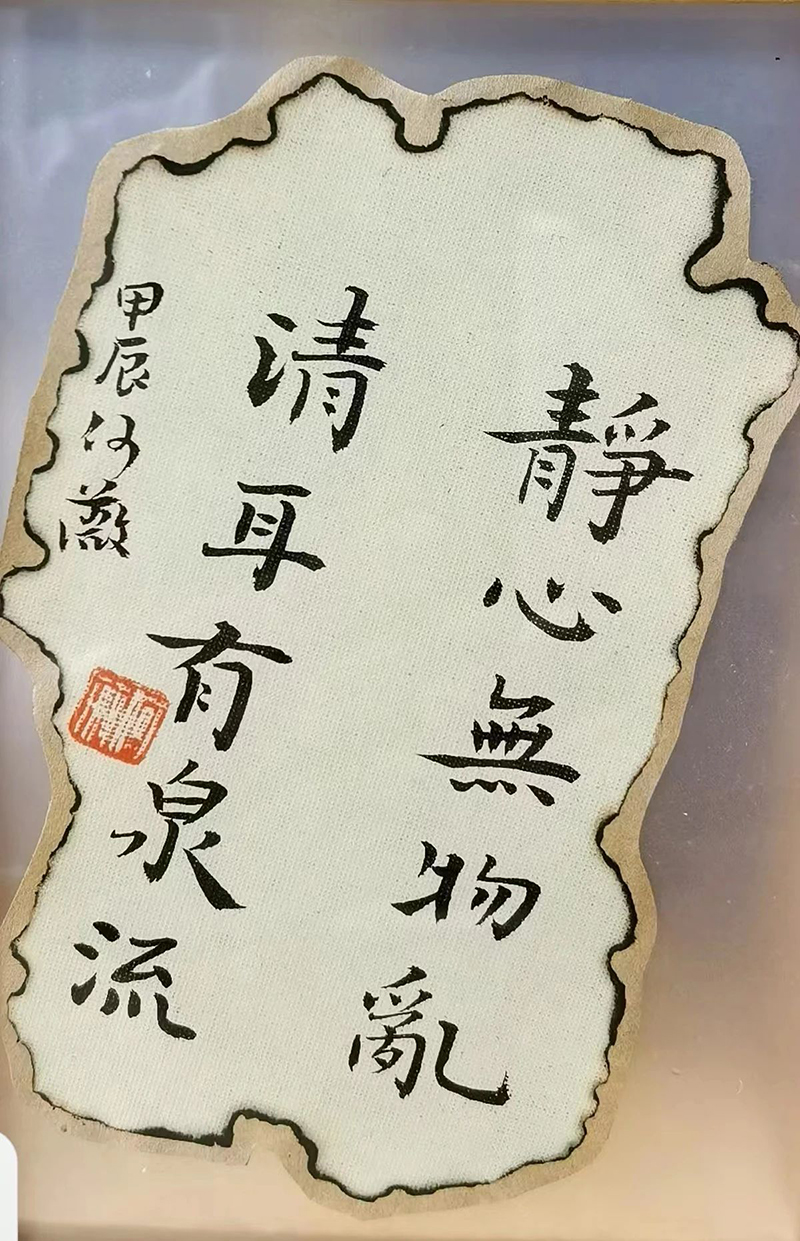 靜心無物亂
清耳有泉流
甲辰何薇